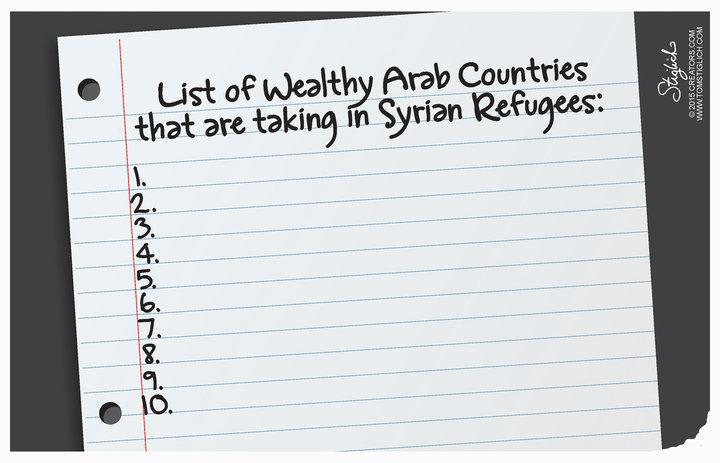 List of Wealthy Arab Countries
that are taking in Syrian Refugees:
1.
2.
3.
4.
5.
6.
7.
8.
9.
10.
Stiglich
© 2015 CREATORS.COM
WWW.TOMSTIGLICH.COM